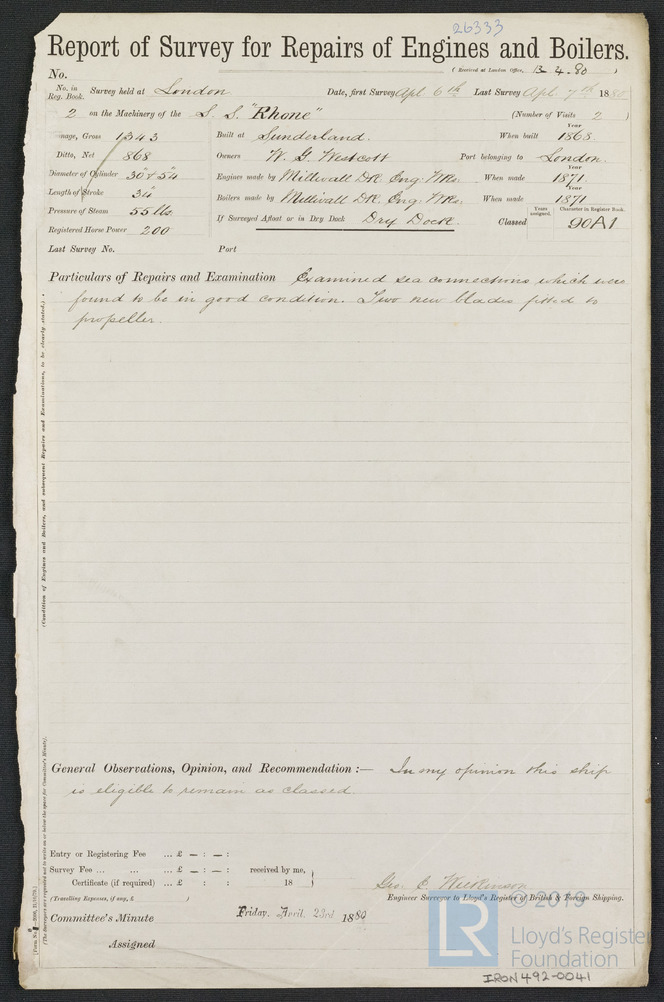 26333
Report of Survey for Repairs of Engines and Boilers.
No. (Received at London Office, 13.4.80 )
No. in Reg. Book. Survey held at London Date, first Survey Apl. 6th Last Survey Apl. 7th 1880
2 on the Machinery of the S. S. "Rhone" (Number of Visits 2 )
nage, Gross 1343
Ditto, Net 868
Diameter of Cylinder 30" & 54
Length of Stroke 34"
Pressure of Steam 55 lbs.
Registered Horse Power 200
Built at Sunderland. When built Year 1863
Owners W. G. Westcott Port belonging to London.
Engines made by Millwall Dk. Eng. Wks. When made 1871
Boilers made by Millwall Dk. Eng. Wks. When made Year 1871
If Surveyed Afloat or in Dry Dock Dry Dock. Classed Years assigned. Character in Register Book. 90A1
Last Survey No. Port
Particulars of Repairs and Examination Examined sea connections which were
found to be in good condition. Two new blades fitted to
propeller.
(Condition of Engines and Boilers, and subsequent Repairs and Examinations, to be clearly stated.)
General Observations, Opinion, and Recommendation :— In my opinion this ship
is eligible to remain as classed.
Entry or Registering Fee ... £ — : — :
Survey Fee ... ... ... £ — : — : received by me,
Certificate (if required) ... £ : : 18
(Travelling Expenses, if any, £ )
Geo. C. Wilkinson
Engineer Surveyor to Lloyd's Register of British & Foreign Shipping.
Committee's Minute Friday, April, 23rd 1880
Assigned
LR © 2019
Lloyd's Register
Foundation
IRON492-0041